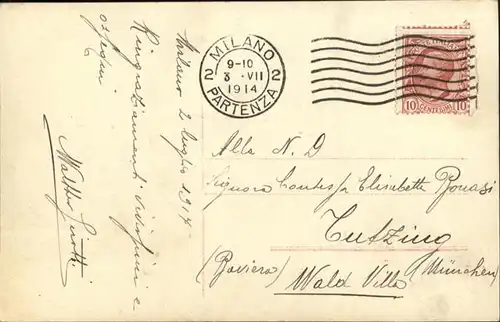 Milano 2 luglio 1914
Ringraziamenti vivissimi e
ossequi
MILANO
2 2
9-10
3 · VII
1914
PARTENZA
10 CENTESIMI 10
Alla N. D
Signora Contessa Elisabetta Bonasi
Tutzing
(Baviera) (München)
Wald Villa